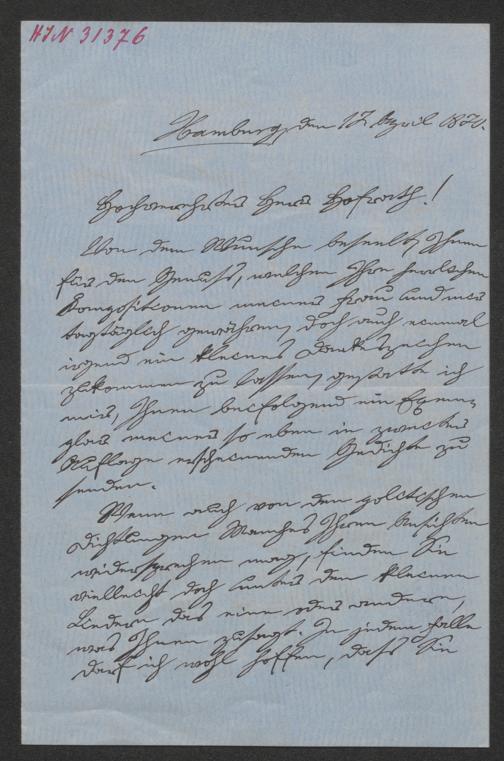 HIN 31376
Hamburg, den 17. April 1870.
Hochverehrter Herr Hofrath!
Von dem Wunsche beseelt, Ihnen
für den Genuß, welchen Ihre herrlichen
Kompositionen meiner Frau und mir
tagtäglich gewähren, doch auch einmal
irgend ein kleines Dankeszeichen
zukommen zu lassen, gestatte ich
mir, Ihnen beifolgend ein Exem-
plar meiner so eben in zweiter
Auflage erscheinenden Gedichte zu
senden.
Wenn auch von den politischen
Dichtungen Manches Ihren Ansichten
widersprechen mag, finden Sie
vielleicht doch unter den kleinen
Liedern das eine oder andere,
was Ihnen zusagt. In jedem Falle
darf ich wohl hoffen, daß Sie